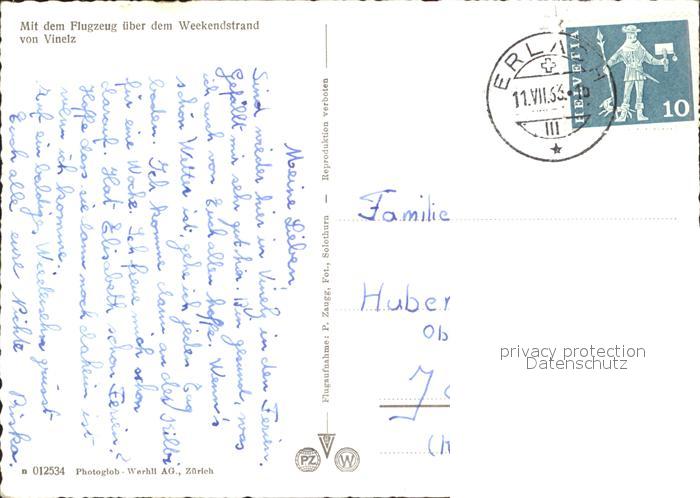 Mit dem Flugzeug über dem Weekendstrand
von Vinelz
Meine Lieben!
Sind wieder hier in Vinelz in den Ferien.
Gefällt mir sehr gut hier. Bin gesund, was
ich auch von Euch allen hoffe. Wenn's
schön Wetter ist, geh ich jeden Tag
baden. Ich komme dann an der Kilbi
für eine Woche. Ich freue mich schon
darauf. Hat Elisabeth schon Ferien?
Hoffe dass sie dann noch daheim ist
wenn ich komme.
Auf ein baldiges Wiedersehn grüsst
Euch alle eure Nichte
n 012534 Photoglob-Wehrli AG., Zürich
Flugaufnahme: P. Zaugg, Fot., Solothurn – Reproduktion verboten
PZ
W
ERLACH
11.VII.63.
III
HELVETIA
10
Familie
Huber
Ob
privacy protection
Datenschutz